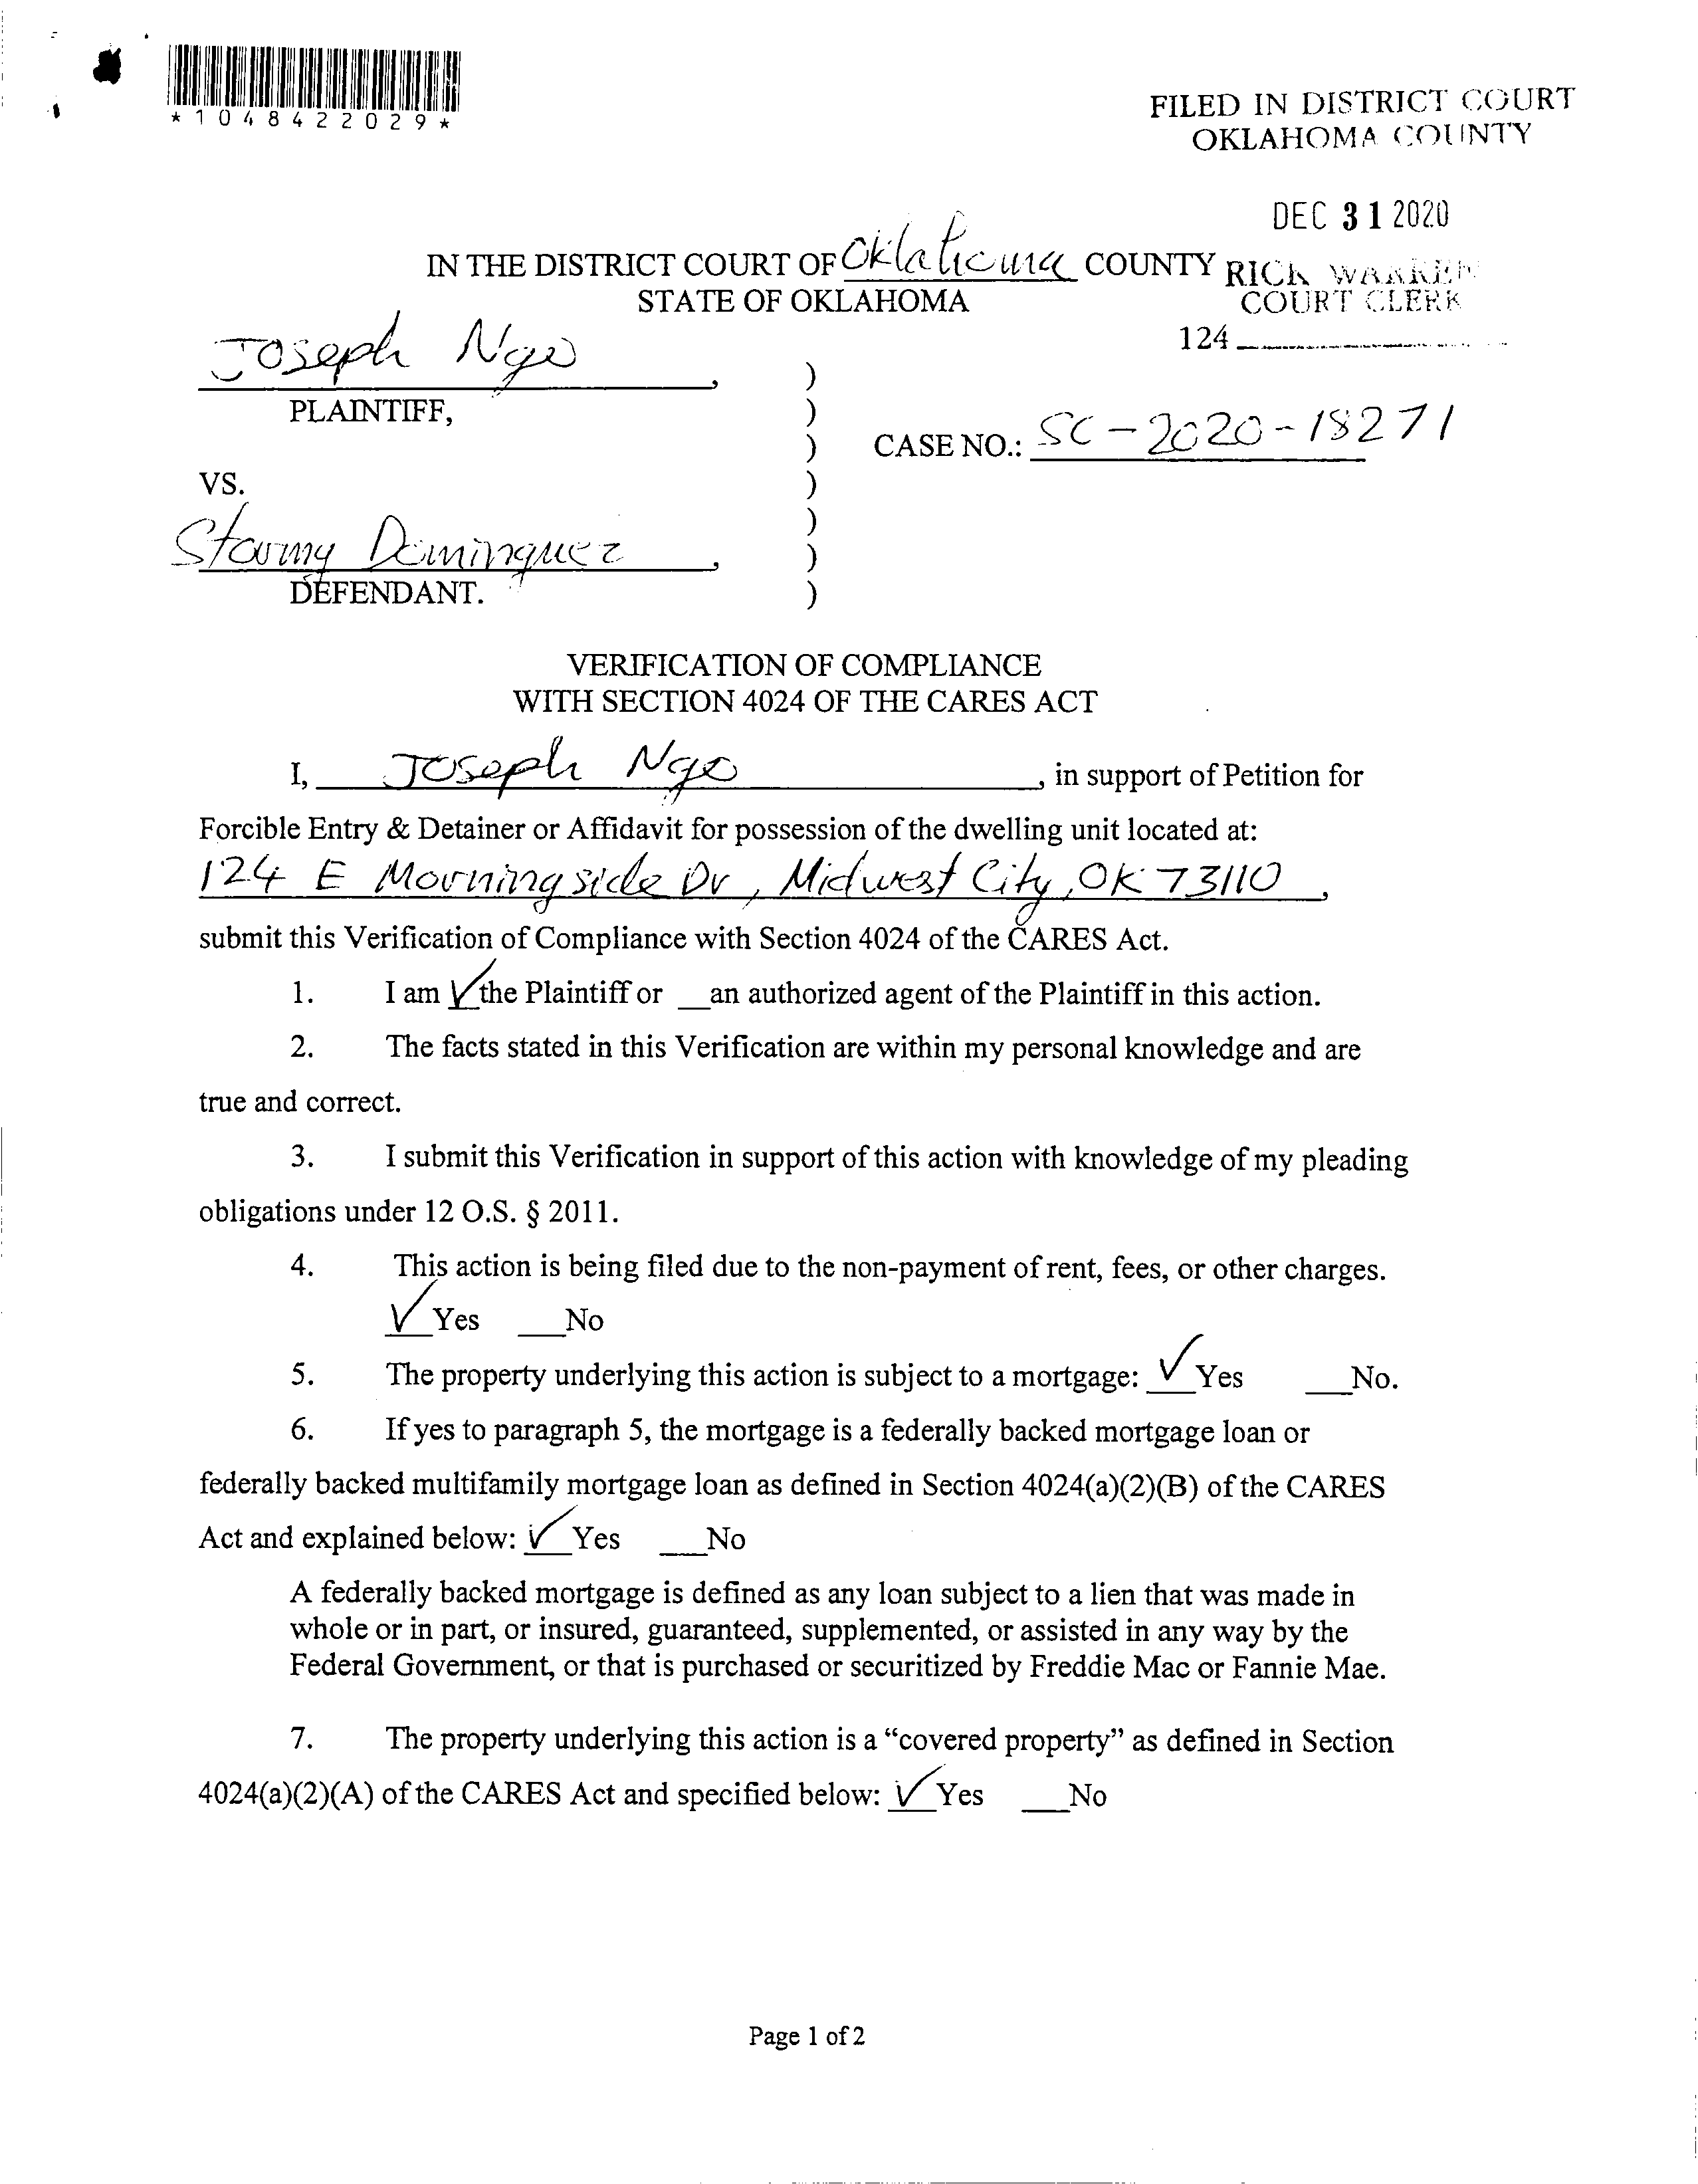 *1048422029*
FILED IN DISTRICT COURT
OKLAHOMA COUNTY
DEC 31 2020
IN THE DISTRICT COURT OF Oklahoma COUNTY
RICK WARREN
STATE OF OKLAHOMA
COURT CLERK
124
Joseph Ngo,
PLAINTIFF,
CASE NO.: SC-2020-18271
VS.
Stormy Dominguez,
DEFENDANT.
)
)
)
)
)
)
)
VERIFICATION OF COMPLIANCE
WITH SECTION 4024 OF THE CARES ACT
I, Joseph Ngo, in support of Petition for
Forcible Entry & Detainer or Affidavit for possession of the dwelling unit located at:
124 E Morningside Dr, Midwest City, OK 73110,
submit this Verification of Compliance with Section 4024 of the CARES Act.
1. I am ✓the Plaintiff or __an authorized agent of the Plaintiff in this action.
2. The facts stated in this Verification are within my personal knowledge and are
true and correct.
3. I submit this Verification in support of this action with knowledge of my pleading
obligations under 12 O.S. § 2011.
4. This action is being filed due to the non-payment of rent, fees, or other charges.
✓Yes ___No
5. The property underlying this action is subject to a mortgage: ✓Yes ___No.
6. If yes to paragraph 5, the mortgage is a federally backed mortgage loan or
federally backed multifamily mortgage loan as defined in Section 4024(a)(2)(B) of the CARES
Act and explained below: ✓Yes ___No
A federally backed mortgage is defined as any loan subject to a lien that was made in
whole or in part, or insured, guaranteed, supplemented, or assisted in any way by the
Federal Government, or that is purchased or securitized by Freddie Mac or Fannie Mae.
7. The property underlying this action is a “covered property” as defined in Section
4024(a)(2)(A) of the CARES Act and specified below: ✓Yes ___No
Page 1 of 2